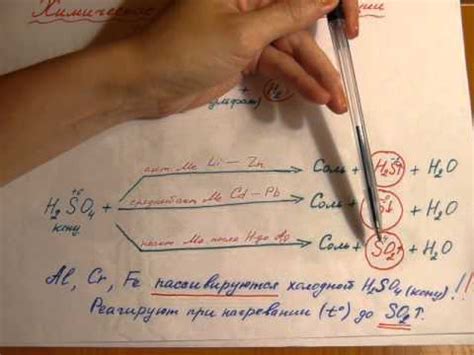 Химическое
+ H₂↑
H₂S⁺⁶O₄ + акт. Ме Li – Zn → Соль + H₂S⁻²↑ + H₂O
конц
Ме Cd – Pb → Соль + S↓ + H₂O
Ме после H до Ag → Соль + SO₂↑ + H₂O
Al, Cr, Fe пассивируются холодной H₂SO₄ (конц) !!!
Реагируют при нагревании (t°) до SO₂↑.